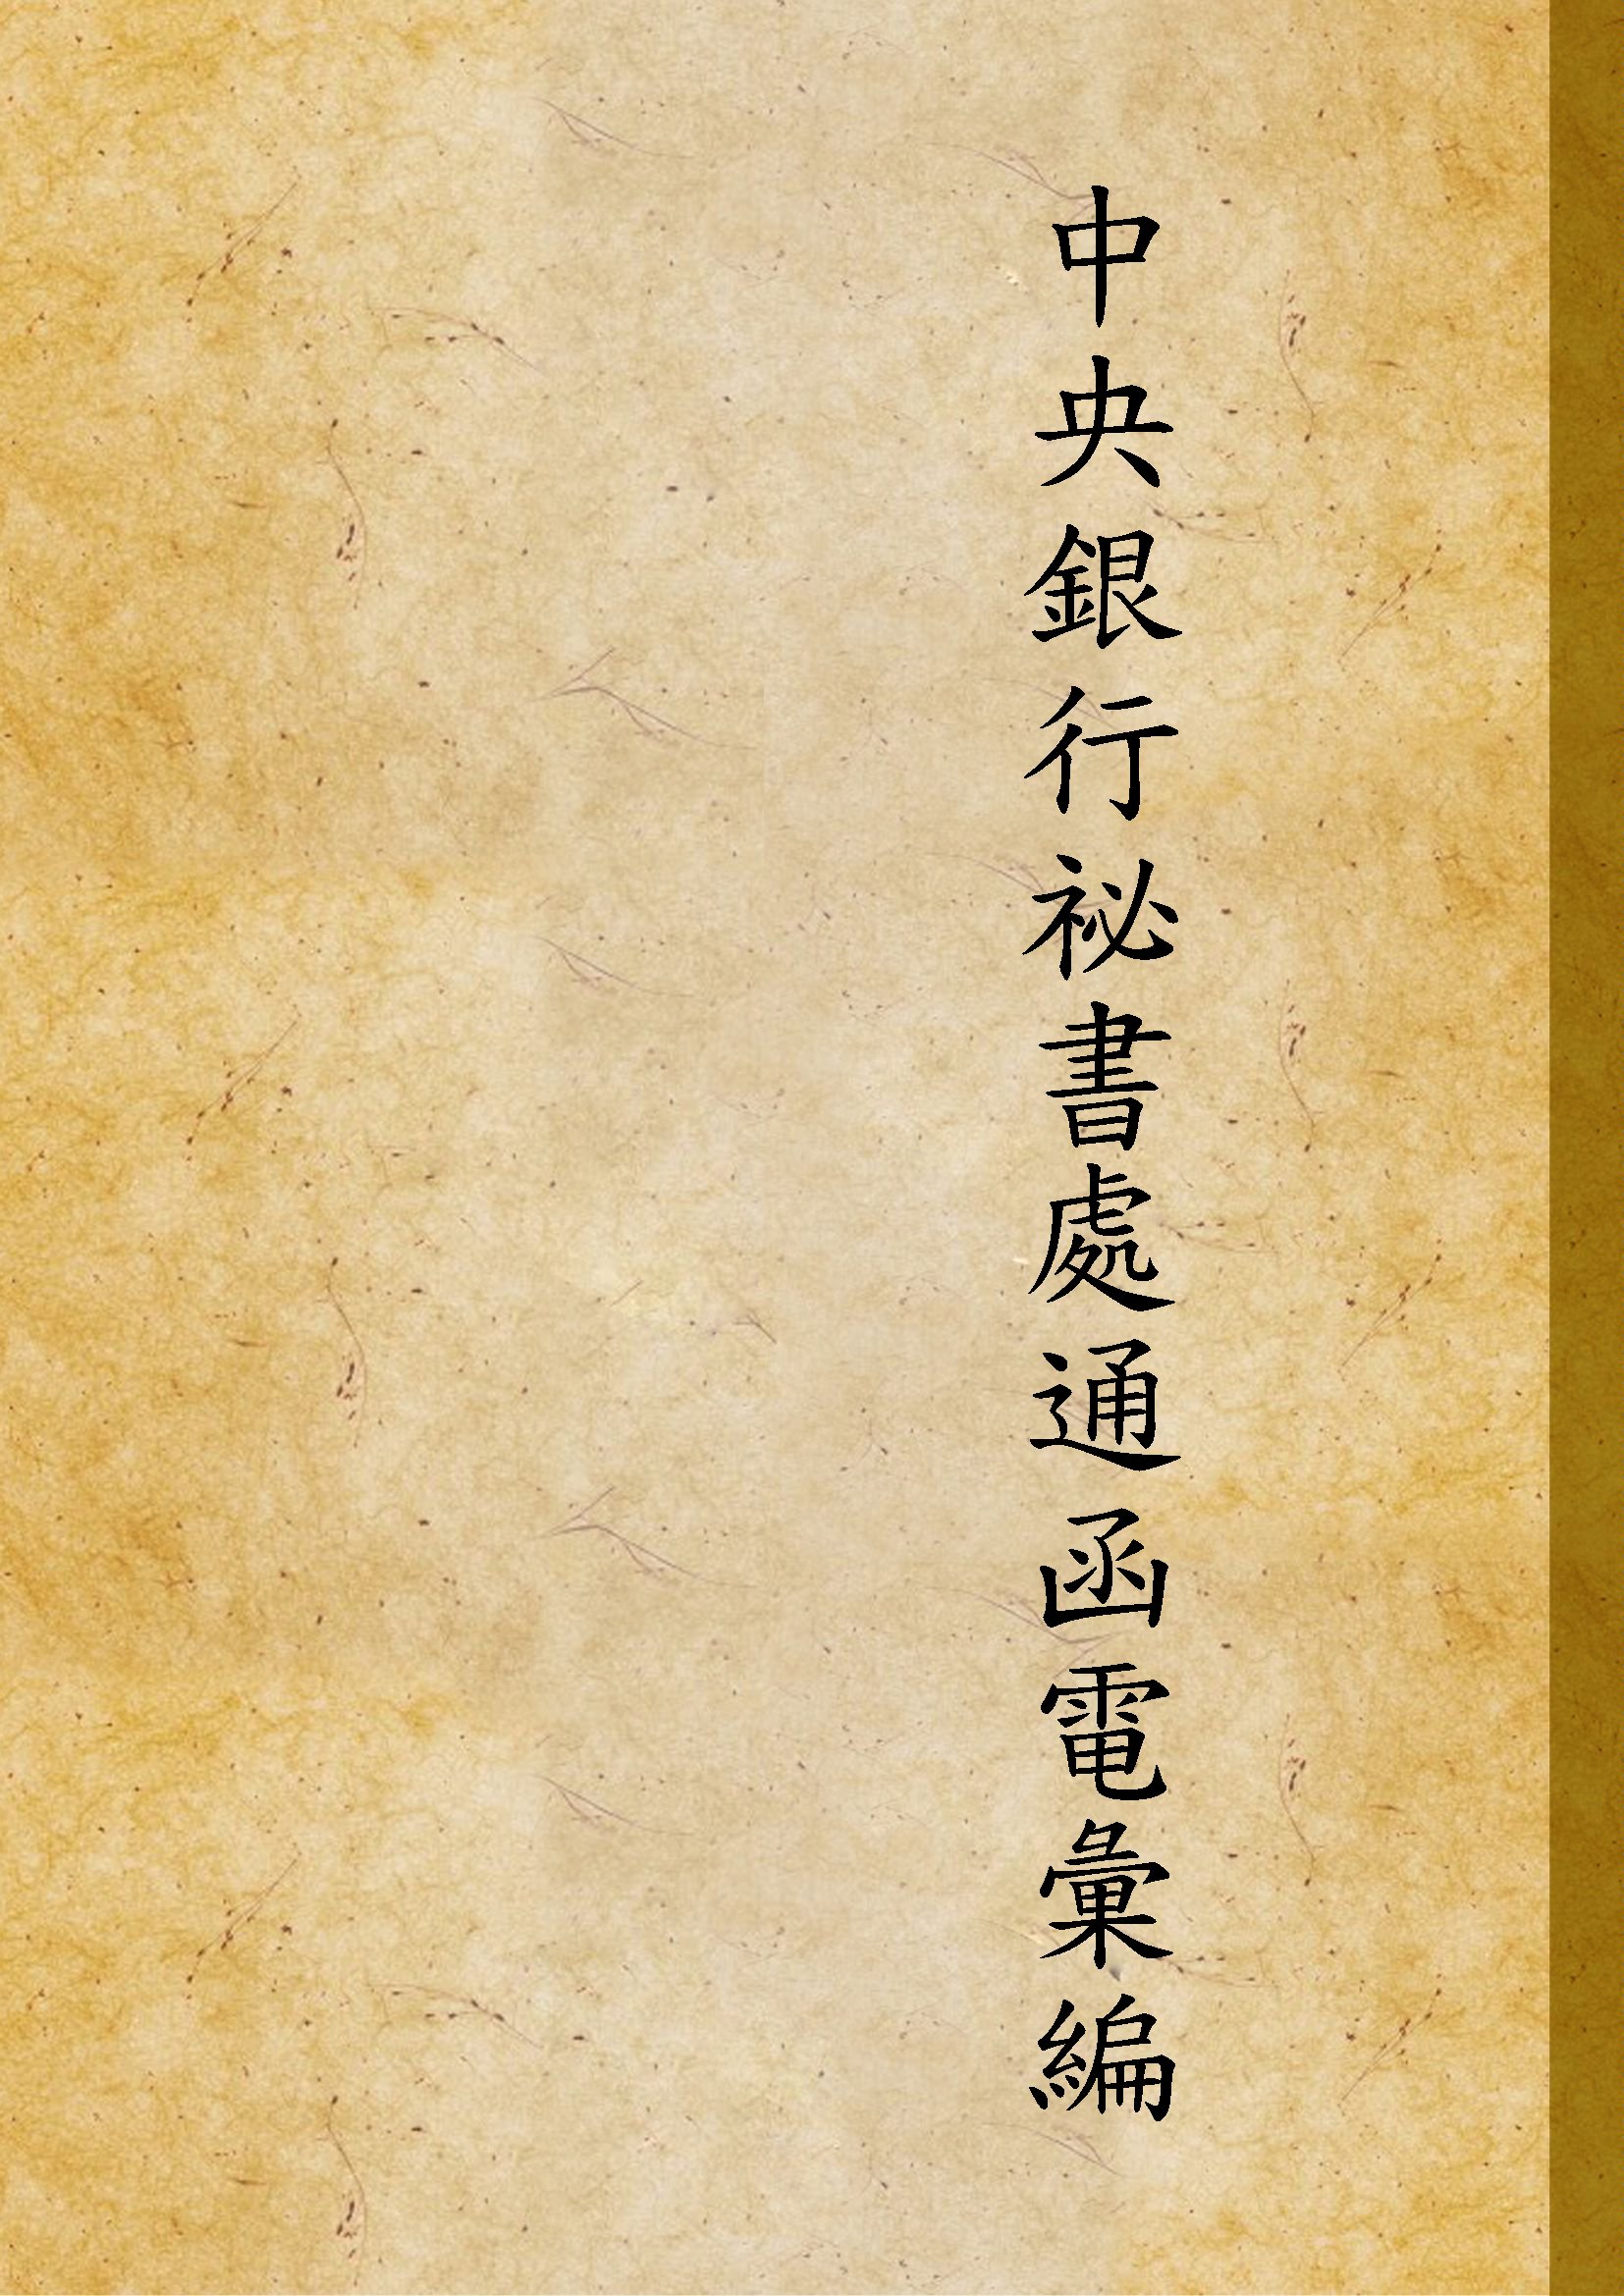 中央銀行祕書處通函電彙編